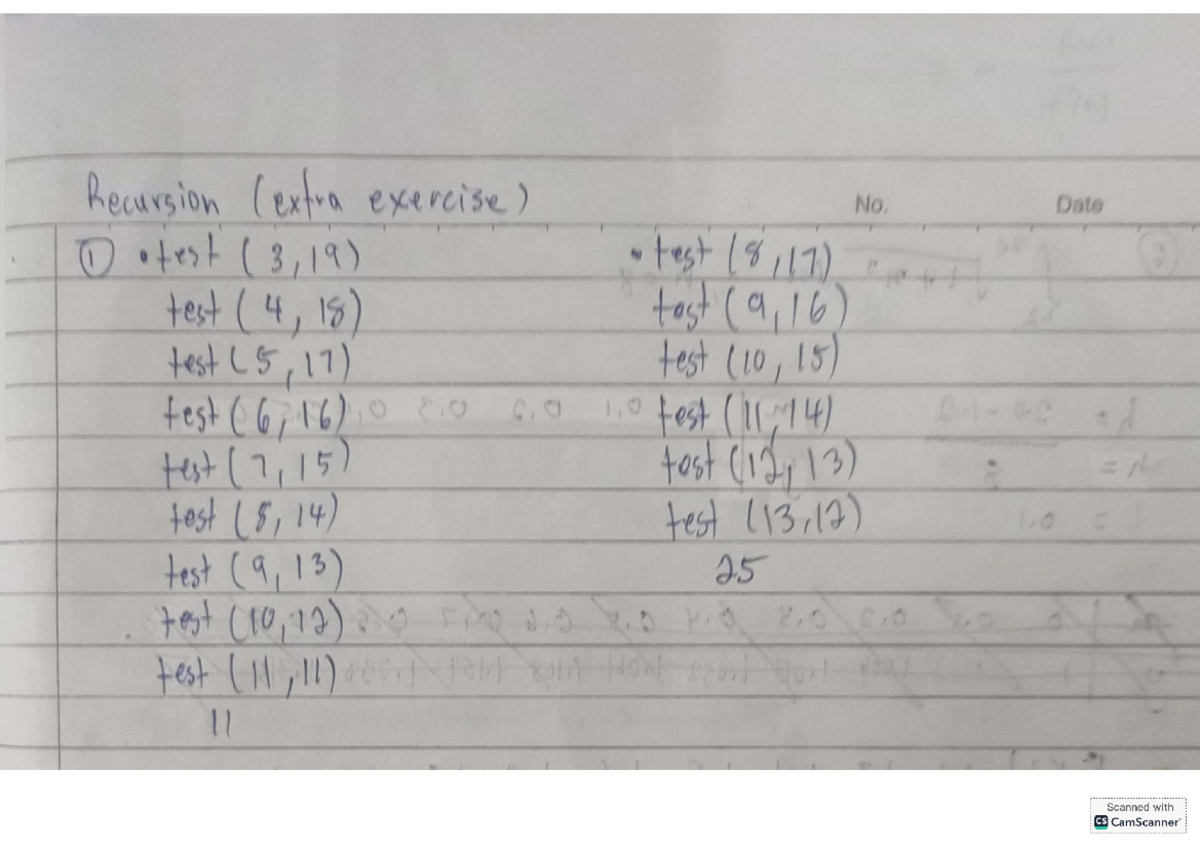 Recursion (extra exercise)
No.
Date
① • test (3,19)
test (4, 18)
test (5,17)
test (6,16)
test (7,15)
test (8,14)
test (9,13)
test (10,12)
test (11,11)
11
• test (8,17)
test (9,16)
test (10,15)
test (11,14)
test (12,13)
test (13,12)
25
Scanned with
CS CamScanner